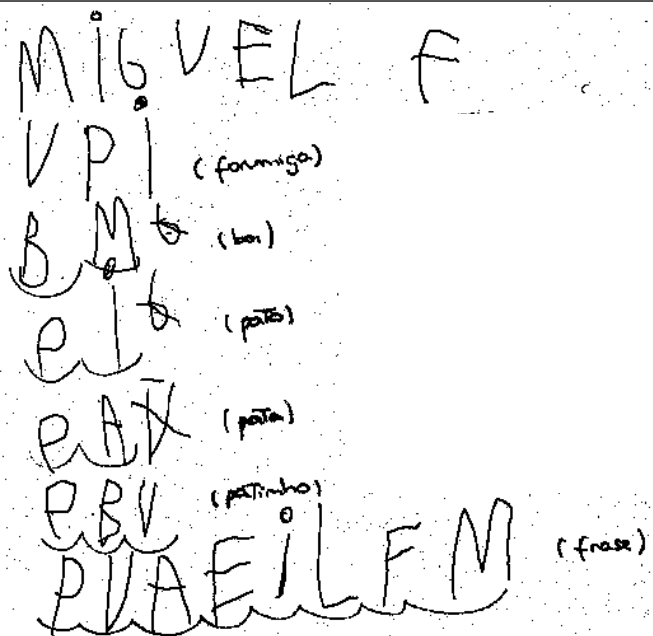 MiGUEL F
VPi (formiga)
BM (boi)
ei (pato)
eA (pata)
eBV (patinho)
PVAEiLFM (frase)